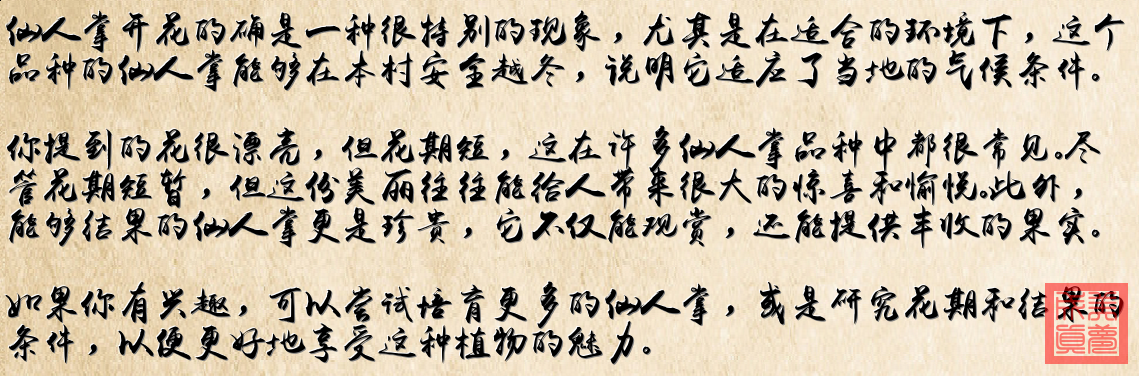 仙人掌开花的确是一种很特别的现象，尤其是在适合的环境下，这个
品种的仙人掌能够在本村安全越冬，说明它适应了当地的气候条件。
你提到的花很漂亮，但花期短，这在许多仙人掌品种中都很常见。尽
管花期短暂，但这份美丽往往能给人带来很大的惊喜和愉悦。此外，
能够结果的仙人掌更是珍贵，它不仅能观赏，还能提供丰收的果实。
如果你有兴趣，可以尝试培育更多的仙人掌，或是研究花期和结果的
条件，以便更好地享受这种植物的魅力。